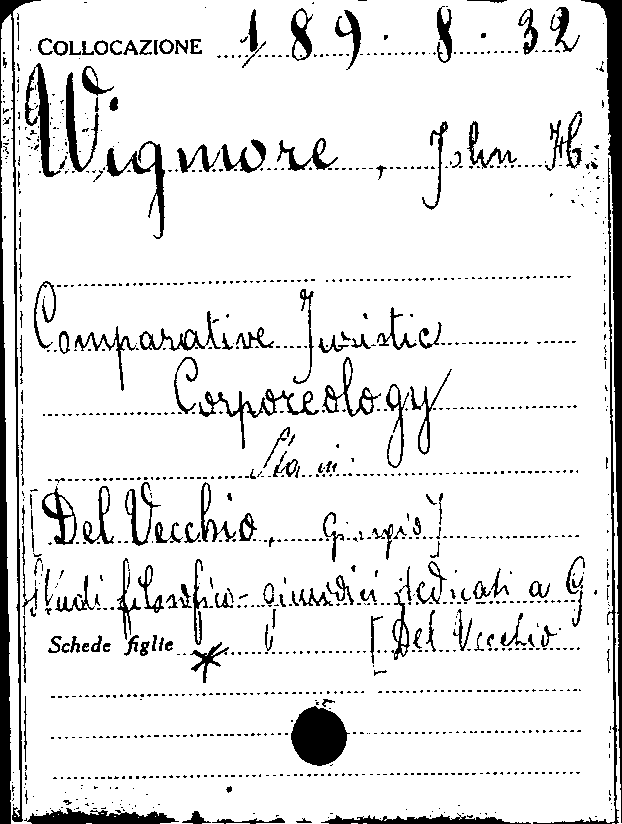 COLLOCAZIONE 189. 8. 32
Wigmore, John H.
Comparative Juristic
Corporeology
Sta in:
[Del Vecchio, Giorgio]
Studi filosofico-giuridici dedicati a G.
Schede figlie [Del Vecchio